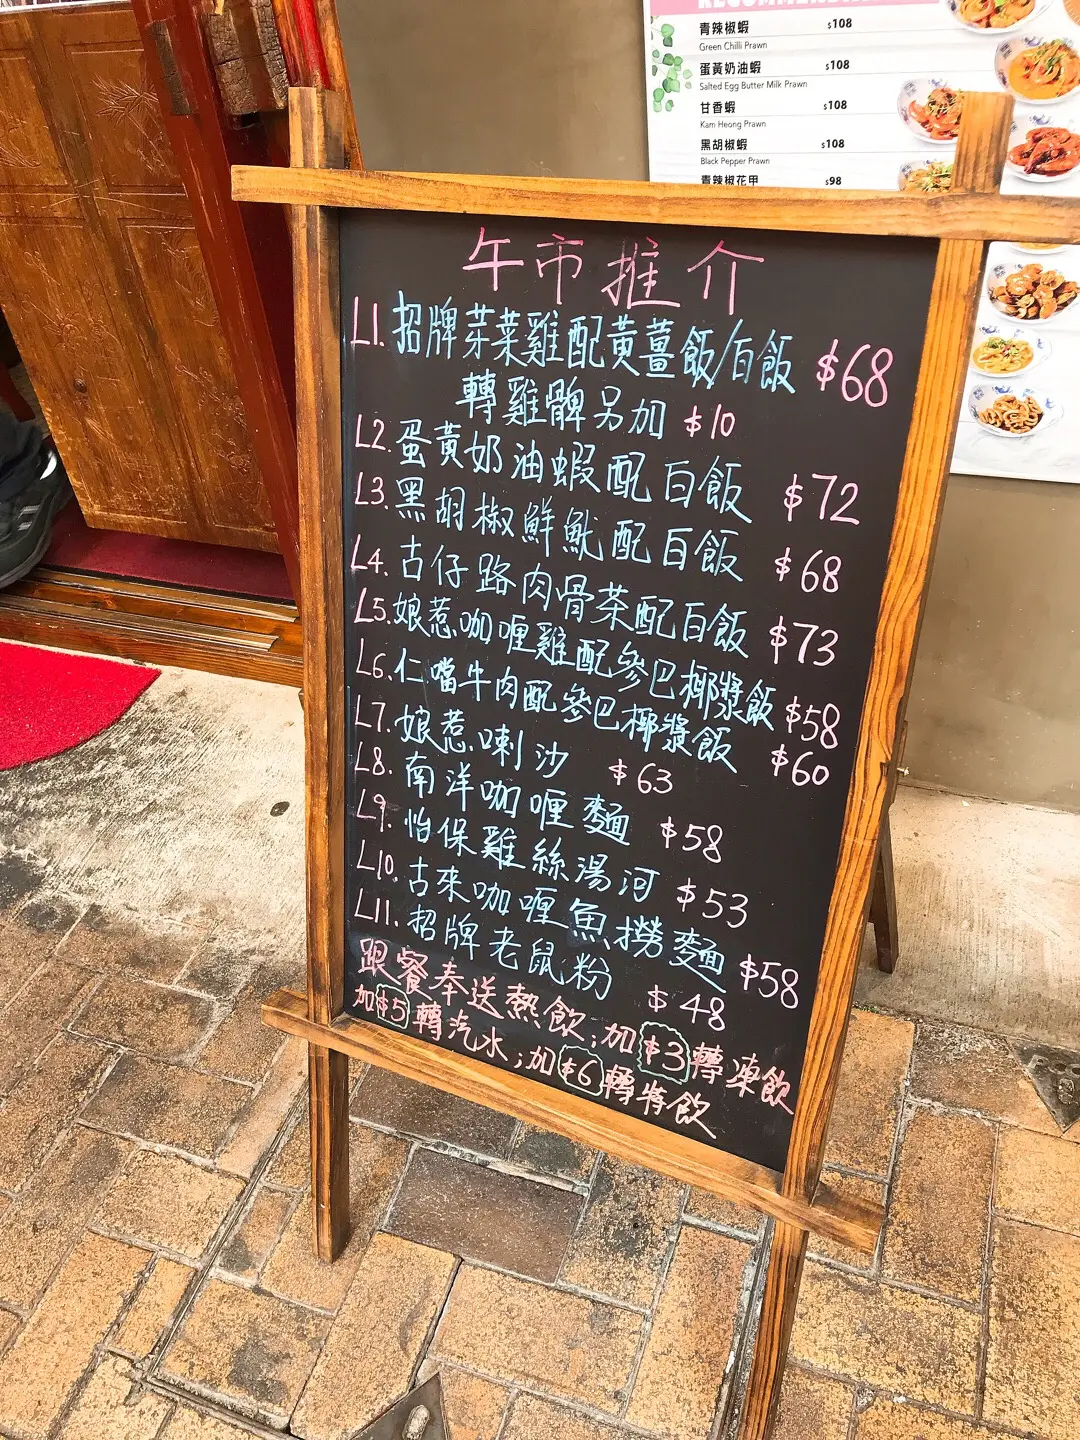 青辣椒蝦 $108
Green Chilli Prawn
蛋黃奶油蝦 $108
Salted Egg Butter Milk Prawn
甘香蝦 $108
Kam Heong Prawn
黑胡椒蝦 $108
Black Pepper Prawn
青辣椒花甲 $98
午市推介
L1. 招牌芽菜雞配黄薑飯/白飯 $68
轉雞髀另加 $10
L2. 蛋黃奶油蝦配白飯 $72
L3. 黑胡椒鮮魷配白飯 $68
L4. 古仔路肉骨茶配白飯 $73
L5. 娘惹咖喱雞配參巴椰漿飯 $58
L6. 仁噹牛肉配參巴椰漿飯 $60
L7. 娘惹喇沙 $63
L8. 南洋咖喱麵 $58
L9. 怡保雞絲湯河 $53
L10. 古來咖喱魚撈麵 $58
L11. 招牌老鼠粉 $48
跟餐奉送熱飲;加$3轉凍飲
加$5轉汽水;加$6轉特飲